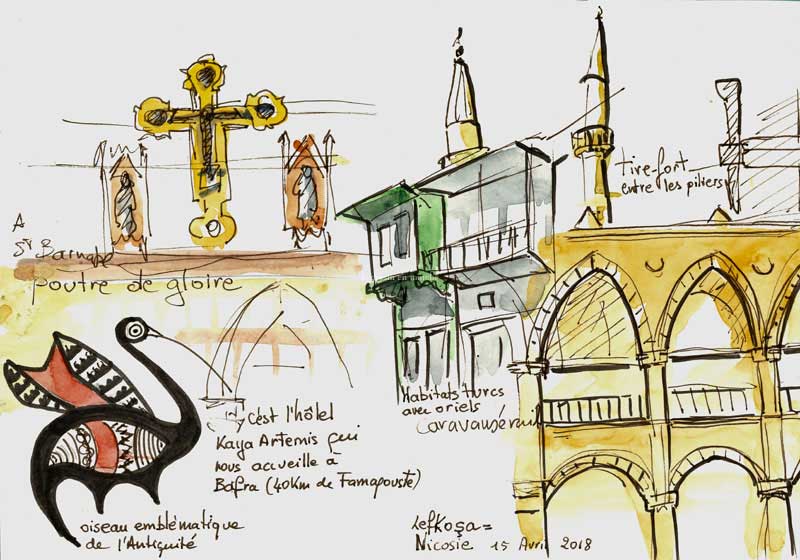 A
St Barnabé
poutre de gloire
tire-fort
entre les piliers
Habitats turcs
avec oriels
Caravansérail
C'est l'hôtel
Kaya Artemis qui
nous accueille à
Bafra (40Km de Famagouste)
oiseau emblématique
de l'Antiquité
Lefkoşa =
Nicosie 15 Avril 2018